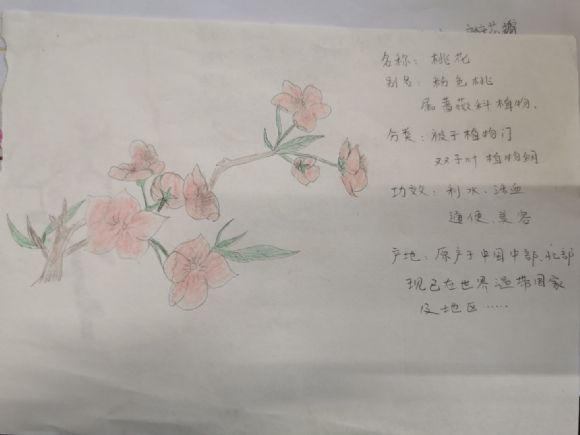 名称：桃花
别名：粉色桃
属蔷薇科植物.
分类：被子植物门
双子叶植物纲
功效：利水、活血
通便、美容
产地：原产于中国中部、北部
现已在世界温带国家
及地区……